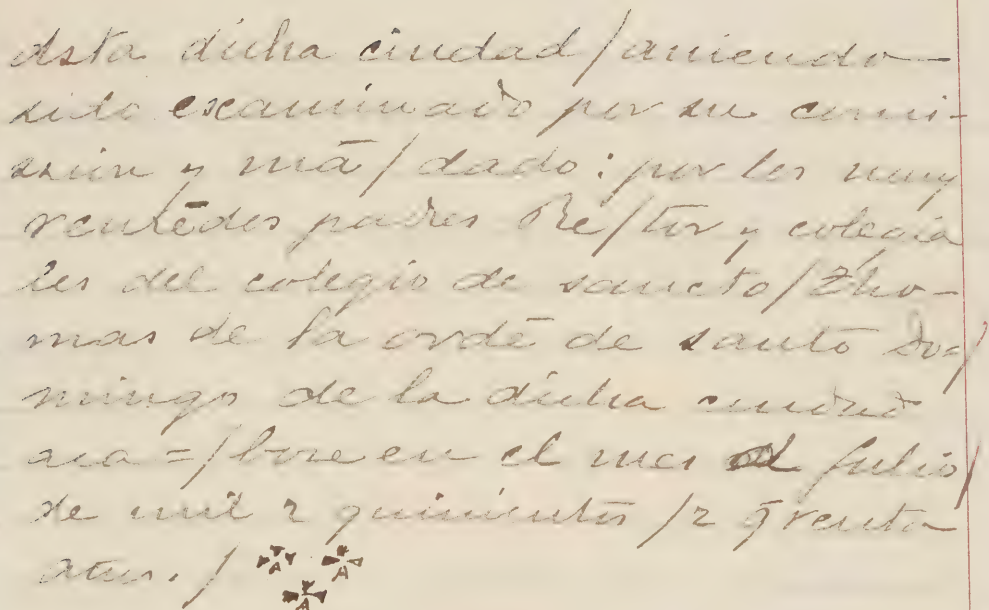 dsta dicha ciudad / auiendo—
sido examinado por su comi-
ssion y mā / dado: por los muy
reuerēdos padres Re / tor y colegia
les del colegio de sancto / Tho-
mas de la ordē de santo Do= /
mingo de la dicha ciudad
en el mes d Julio /
de mil z quinientos / z q̄renta
años. /